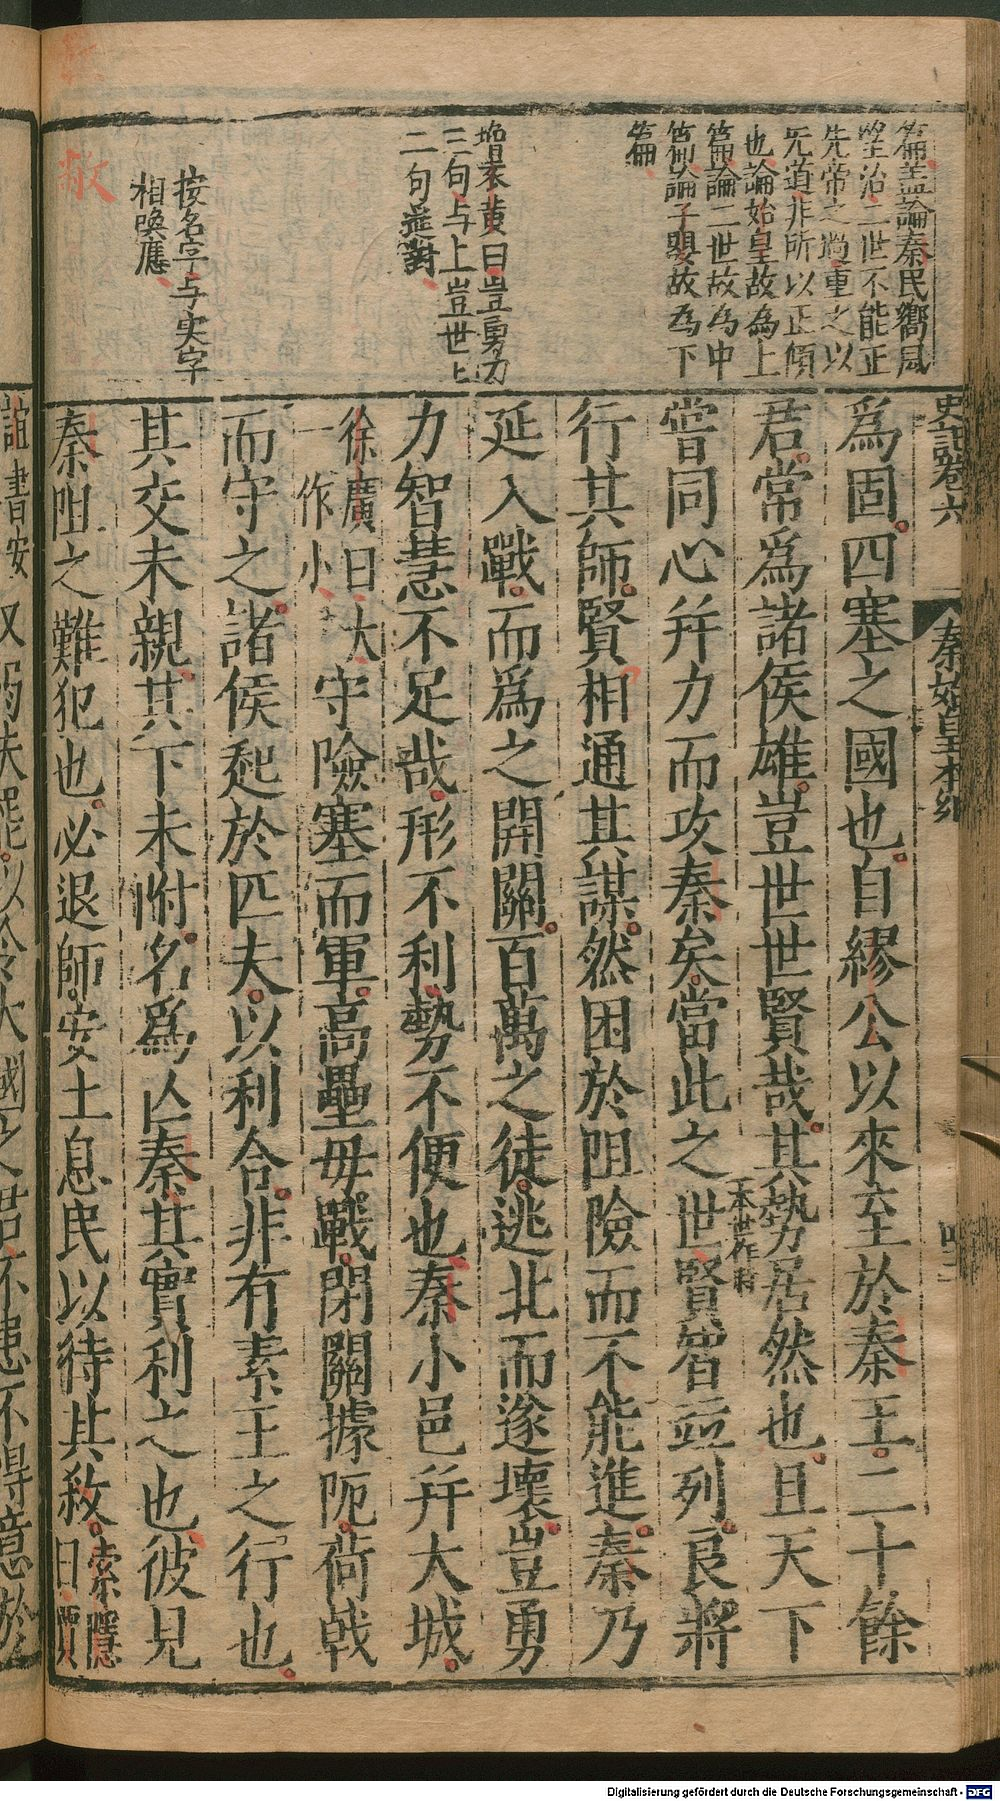 史記卷六
秦始皇本紀
篇盖論秦民嚮風
望治二世不能正
先帝之過重之以
无道非所以正傾
也論始皇故為上
篇論二世故為中
篇論子嬰故為下
篇
增表黄曰豈勇力
三句与上豈世上
二句遥對
按名字与实字
相喚應
爲固四塞之國也自繆公以來至於秦王二十餘
君常爲諸侯雄豈世世賢哉其勢居然也且天下
嘗同心并力而攻秦矣當此之世賢智並列良將
一本世作時
行其師賢相通其謀然困於阻險而不能進秦乃
延入戰而爲之開關百萬之徒逃北而遂壞豈勇
力智慧不足哉形不利勢不便也秦小邑并大城
徐廣曰大
一作小
守險塞而軍高壘毋戰閉關據阨荷戟
而守之諸侯起於匹夫以利合非有素王之行也
其交未親其下未附名爲亾秦其實利之也彼見
秦阻之難犯也必退師安土息民以待其敝
索隱
曰賈
誼書安
Digitalisierung gefördert durch die Deutsche Forschungsgemeinschaft - DFG